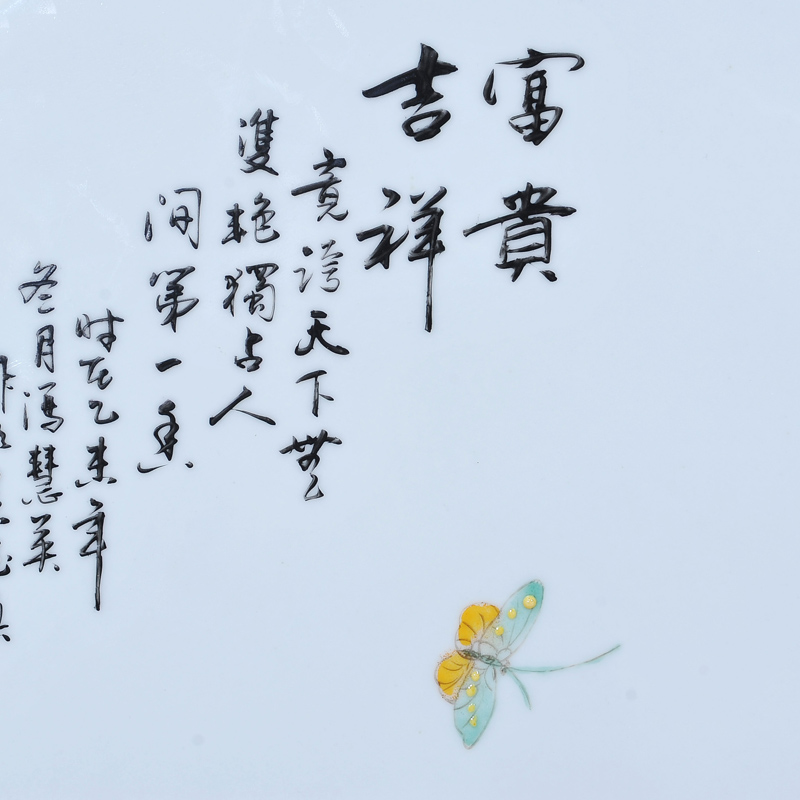 富貴
吉祥
竟誇天下無
雙艳獨占人
間第一香
时在乙未年
冬月馮慧英